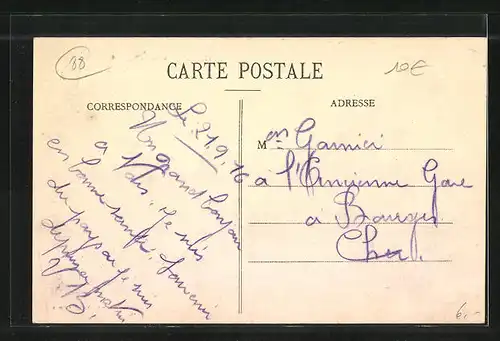 88
10€
CARTE POSTALE
CORRESPONDANCE
ADRESSE
Le 21.9.16
Mon grand bonjour
a Vous. Je suis
en bonne santé. Souvenir
du pays ou je suis
depuis
Men Garnier
a l'Ancienne Gare
a Bourges
Cher.
6.-